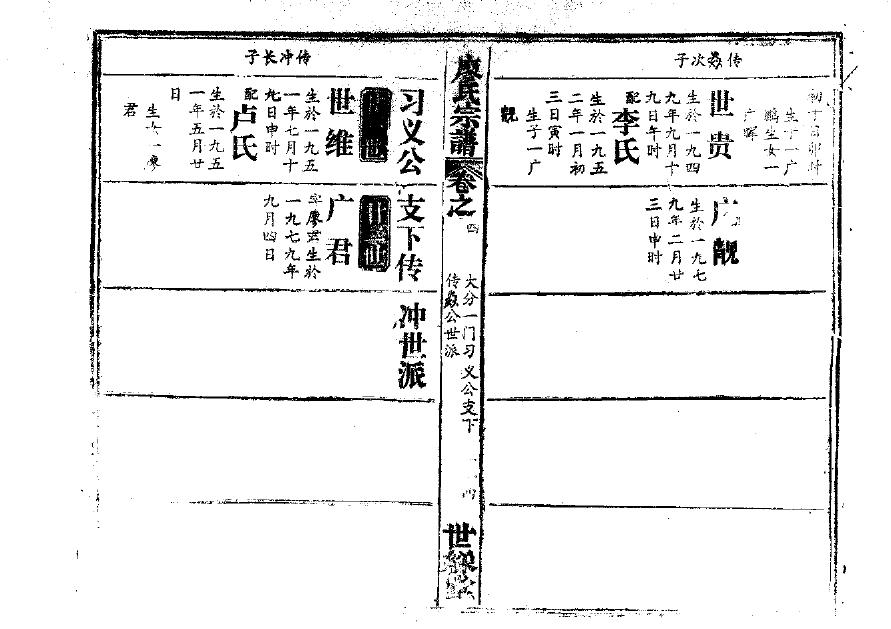 传彝次子
初十日卯时
生子一广
鹏生女一
广晖
世贵
生於一九四
九年九月十
九日午时
配李氏
生於一九五
二年一月初
三日寅时
生子一广
靓
广靓
生於一九七
九年二月廿
三日申时
廖氏宗譜
卷之四
大分一门习义公支下
传彝公世派
四
世
习义公支下传冲世派
传冲长子
世维
生於一九五
一年七月十
九日申时
配卢氏
生於一九五
一年五月廿
日
生女一廖
君
广君
字廖云生於
一九七九年
九月四日